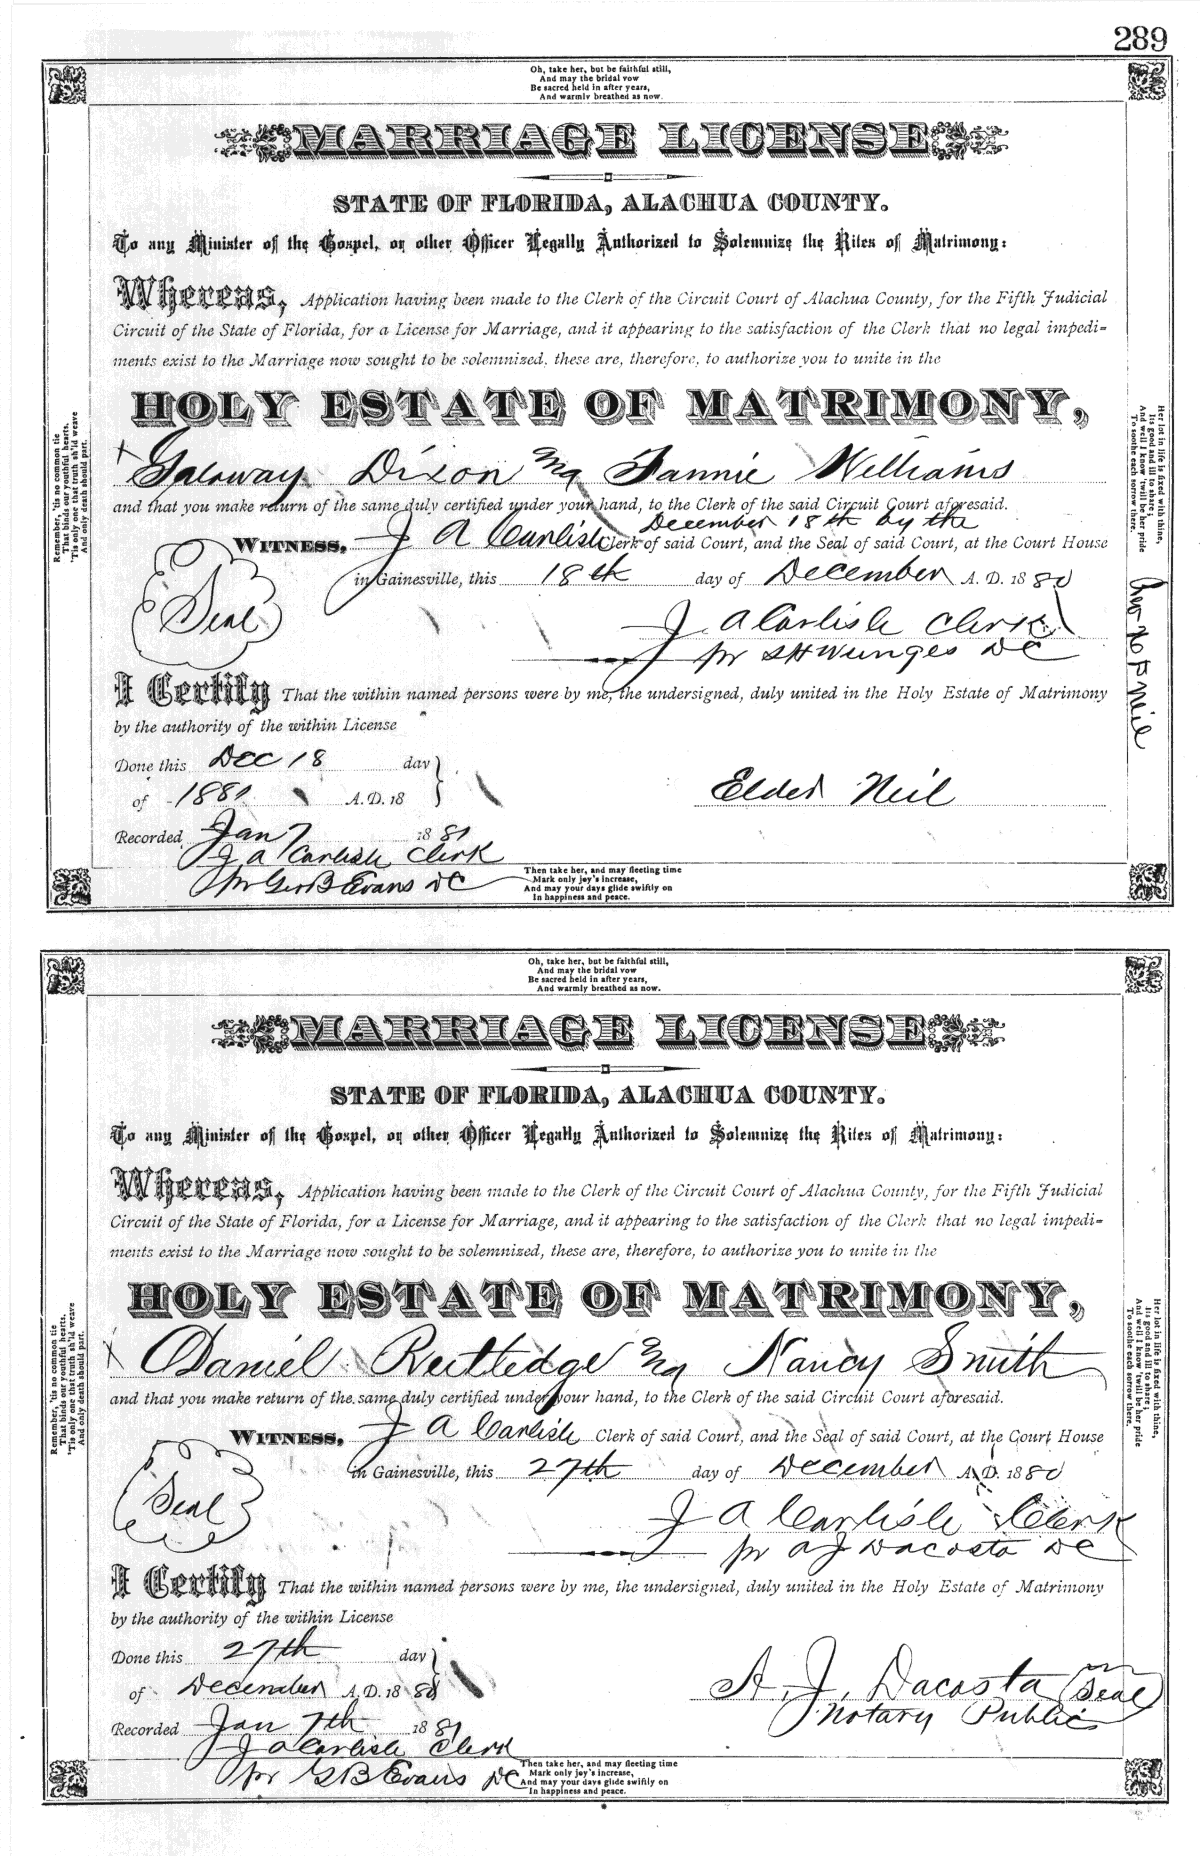 289
Oh, take her, but be faithful still,
And may the bridal vow
Be sacred held in after years,
And warmly breathed as now.
MARRIAGE LICENSE
STATE OF FLORIDA, ALACHUA COUNTY.
To any Minister of the Gospel, or other Officer Legally Authorized to Solemnize the Rites of Matrimony:
Whereas, Application having been made to the Clerk of the Circuit Court of Alachua County, for the Fifth Judicial
Circuit of the State of Florida, for a License for Marriage, and it appearing to the satisfaction of the Clerk that no legal impedi-
ments exist to the Marriage now sought to be solemnized, these are, therefore, to authorize you to unite in the
HOLY ESTATE OF MATRIMONY,
x Galoway Dixon and Fannie Williams
and that you make return of the same duly certified under your hand, to the Clerk of the said Circuit Court aforesaid.
December 18th by the
WITNESS, J A Carlisle Clerk of said Court, and the Seal of said Court, at the Court House
in Gainesville, this 18th day of December A. D. 1880
Seal
J A Carlisle Clerk
pr S H Wienges DC
I Certify That the within named persons were by me, the undersigned, duly united in the Holy Estate of Matrimony
by the authority of the within License
Done this Dec 18 day
of 1880 A. D. 18
Elder Neil
Recorded Jan 7 1881
J A Carlisle Clerk
pr Geo B Evans DC
Then take her, and may fleeting time
Mark only joy's increase,
And may your days glide swiftly on
In happiness and peace.
Remember, 'tis no common tie
That binds our youthful hearts,
'Tis only one that truth sh'ld weave
And only death should part.
Her lot in life is fixed with thine,
Its good and ill to share;
And well I know 'twill be her pride
To soothe each sorrow there.
Neil
Oh, take her, but be faithful still,
And may the bridal vow
Be sacred held in after years,
And warmly breathed as now.
MARRIAGE LICENSE
STATE OF FLORIDA, ALACHUA COUNTY.
To any Minister of the Gospel, or other Officer Legally Authorized to Solemnize the Rites of Matrimony:
Whereas, Application having been made to the Clerk of the Circuit Court of Alachua County, for the Fifth Judicial
Circuit of the State of Florida, for a License for Marriage, and it appearing to the satisfaction of the Clerk that no legal impedi-
ments exist to the Marriage now sought to be solemnized, these are, therefore, to authorize you to unite in the
HOLY ESTATE OF MATRIMONY,
x Daniel Rutledge and Nancy Smith
and that you make return of the same duly certified under your hand, to the Clerk of the said Circuit Court aforesaid.
WITNESS, J A Carlisle Clerk of said Court, and the Seal of said Court, at the Court House
in Gainesville, this 27th day of December A. D. 1880
Seal
J A Carlisle Clerk
pr A J Dacosta DC
I Certify That the within named persons were by me, the undersigned, duly united in the Holy Estate of Matrimony
by the authority of the within License
Done this 27th day
of December A. D. 1880
A. J. Dacosta Seal
Notary Public
Recorded Jan 7th 1881
J A Carlisle Clerk
pr G B Evans DC
Then take her, and may fleeting time
Mark only joy's increase,
And may your days glide swiftly on
In happiness and peace.
Remember, 'tis no common tie
That binds our youthful hearts,
'Tis only one that truth sh'ld weave
And only death should part.
Her lot in life is fixed with thine,
Its good and ill to share;
And well I know 'twill be her pride
To soothe each sorrow there.